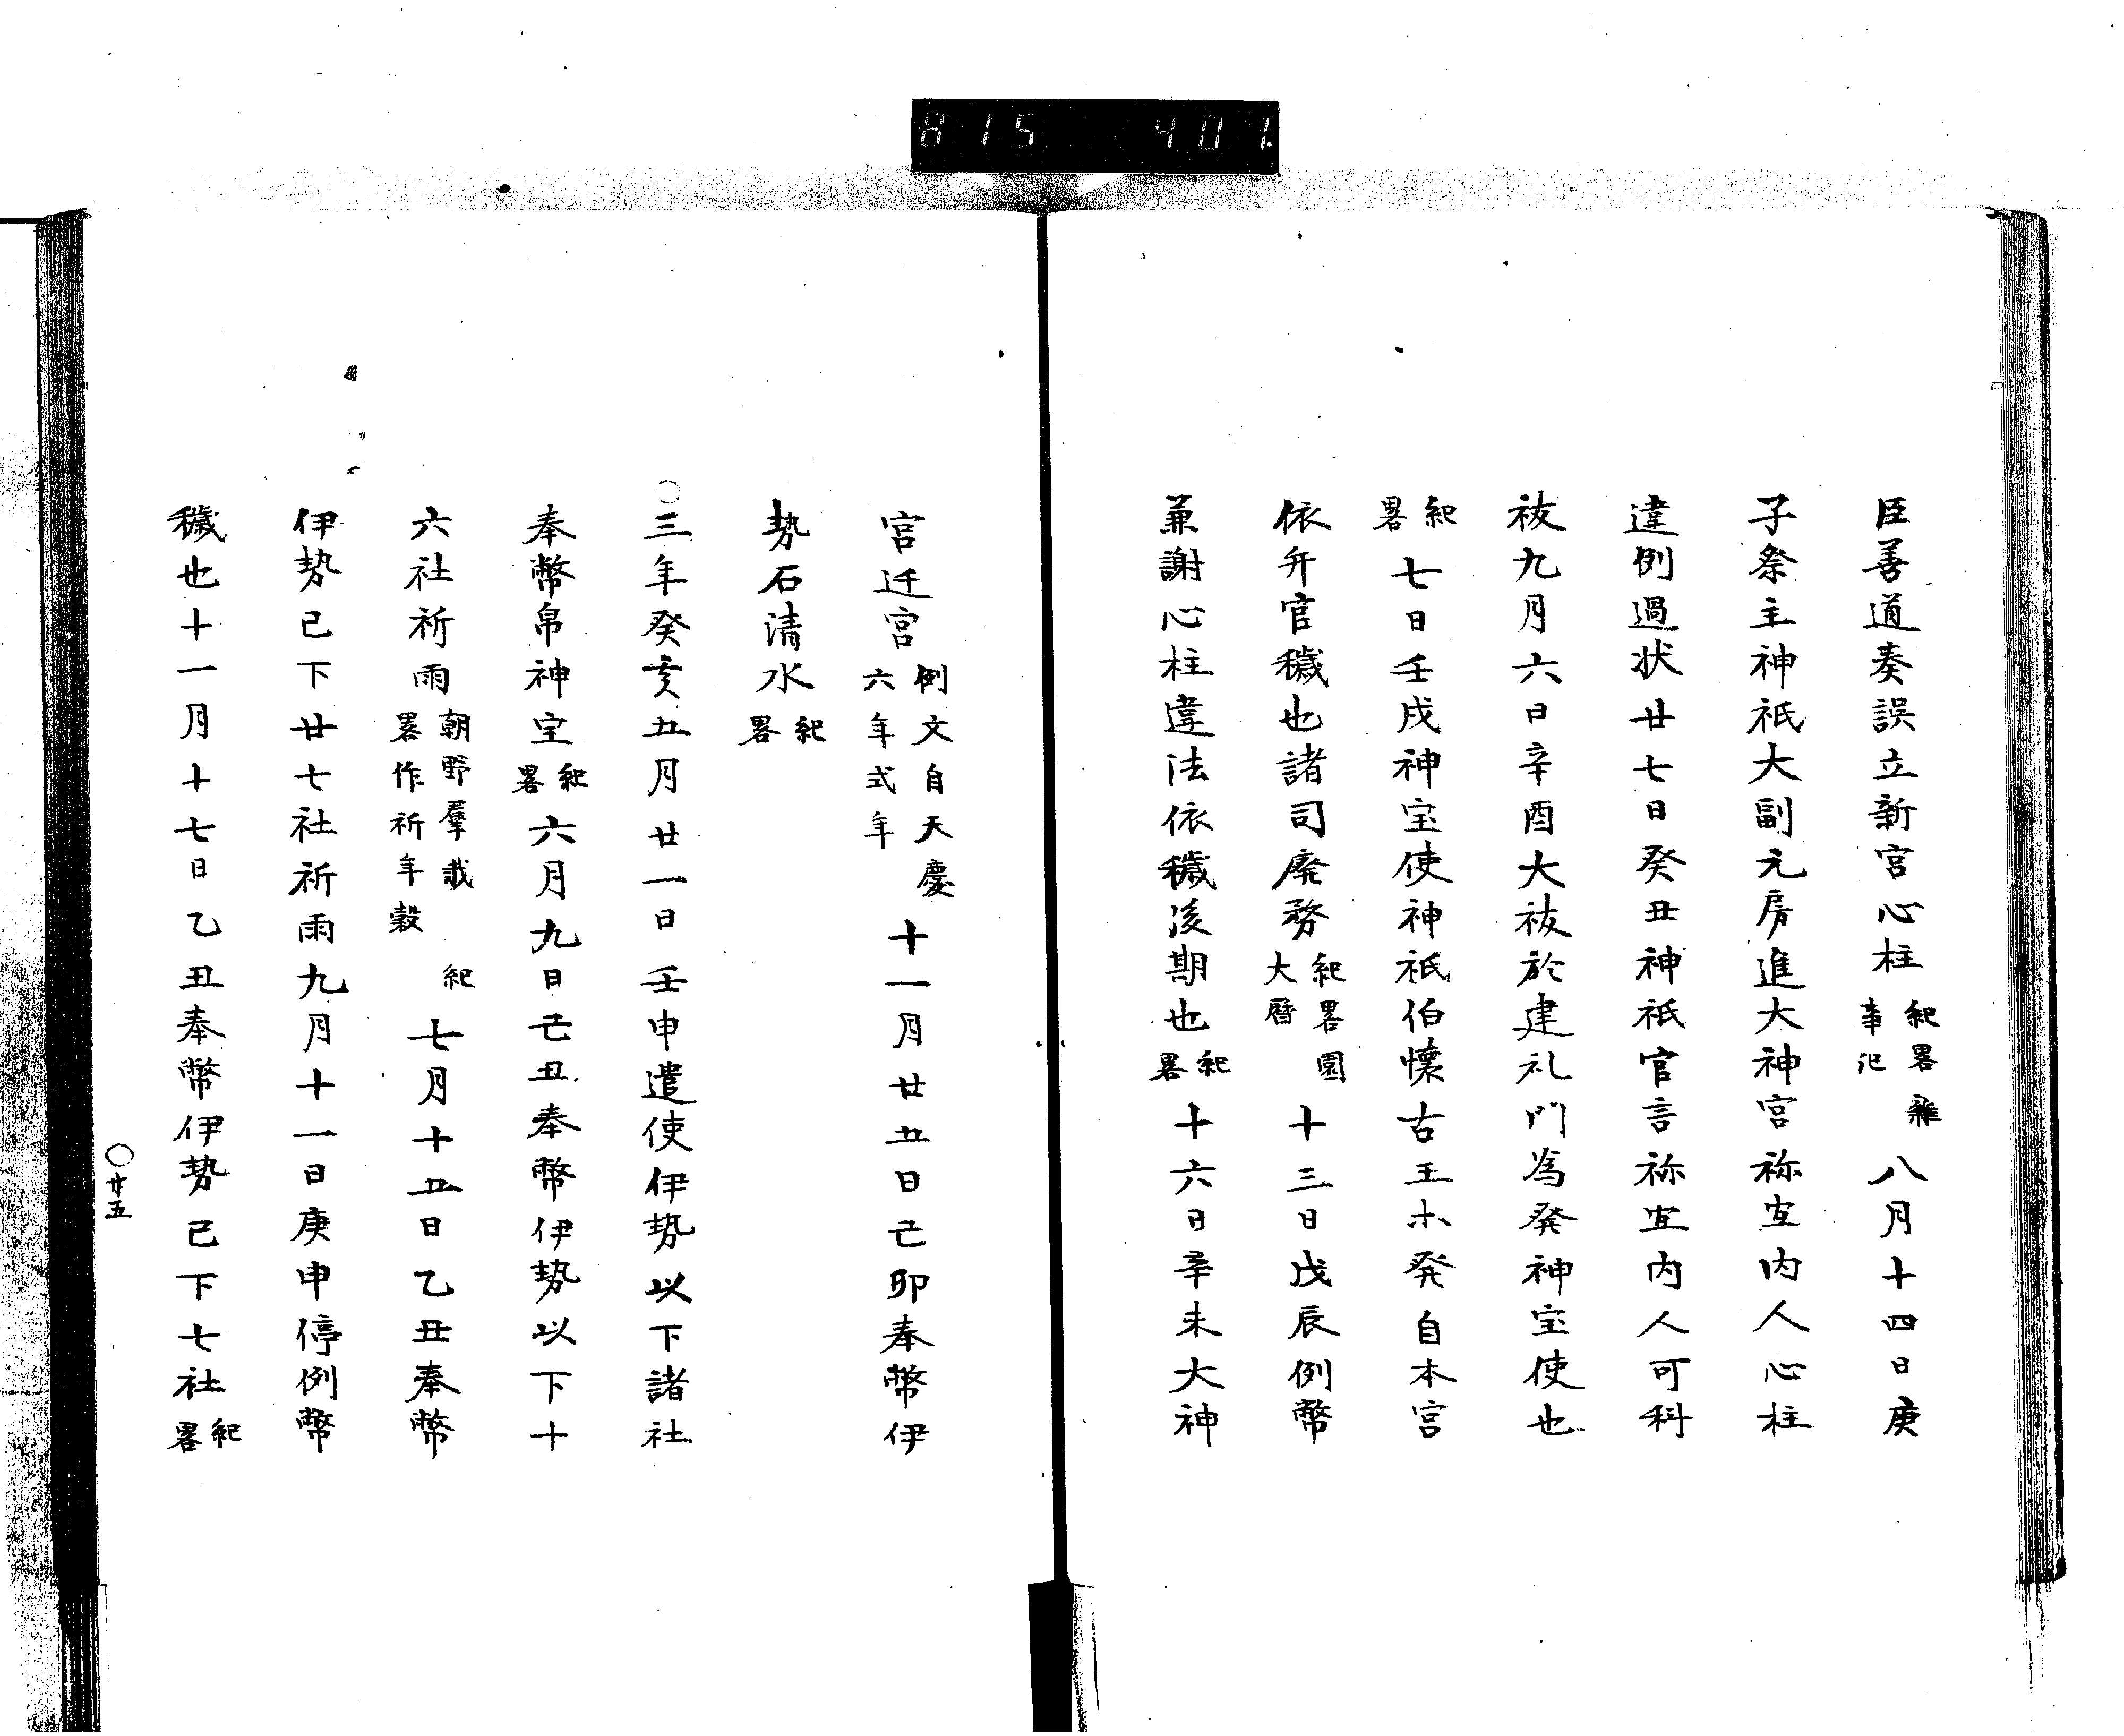 815 401
臣善道奏誤立新宮心柱紀畧雜事記八月十四日庚
子祭主神祇大副元房進大神宮祢宜内人心柱
違例過状廿七日癸丑神祇官言祢宜内人可科
祓九月六日辛酉大祓於建礼門為発神宝使也
紀畧七日壬戌神宝使神祇伯懐古王ホ発自本宮
依弁官穢也諸司廃務紀畧園大暦十三日戊辰例幣
兼謝心柱違法依穢後期也紀畧十六日辛未大神
宮迁宮例文自天慶六年式年十一月廿五日己卯奉幣伊
勢石清水紀畧
〇三年癸亥五月廿一日壬申遣使伊勢以下諸社
奉幣帛神宝紀畧六月九日己丑奉幣伊勢以下十
六社祈雨朝野羣載紀畧作祈年穀七月十五日乙丑奉幣
伊勢已下廿七社祈雨九月十一日庚申停例幣
穢也十一月十七日乙丑奉幣伊勢已下七社紀畧
〇廿五